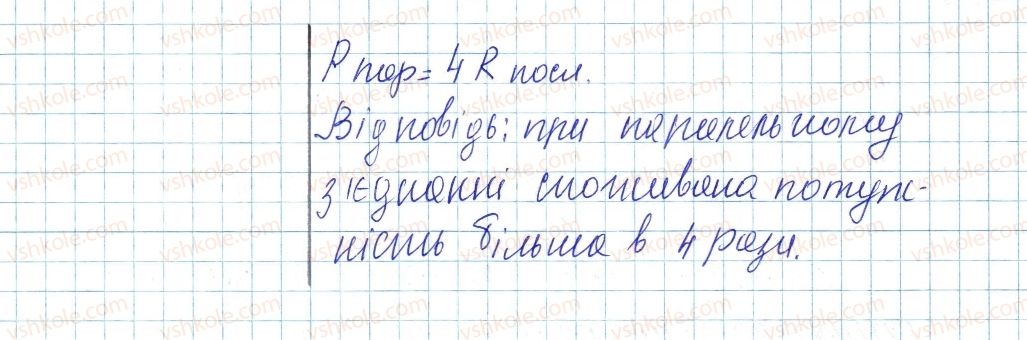 P пар = 4 R посл.
Відповідь: при паралельному
з'єднанні споживана потуж-
ність більша в 4 рази.